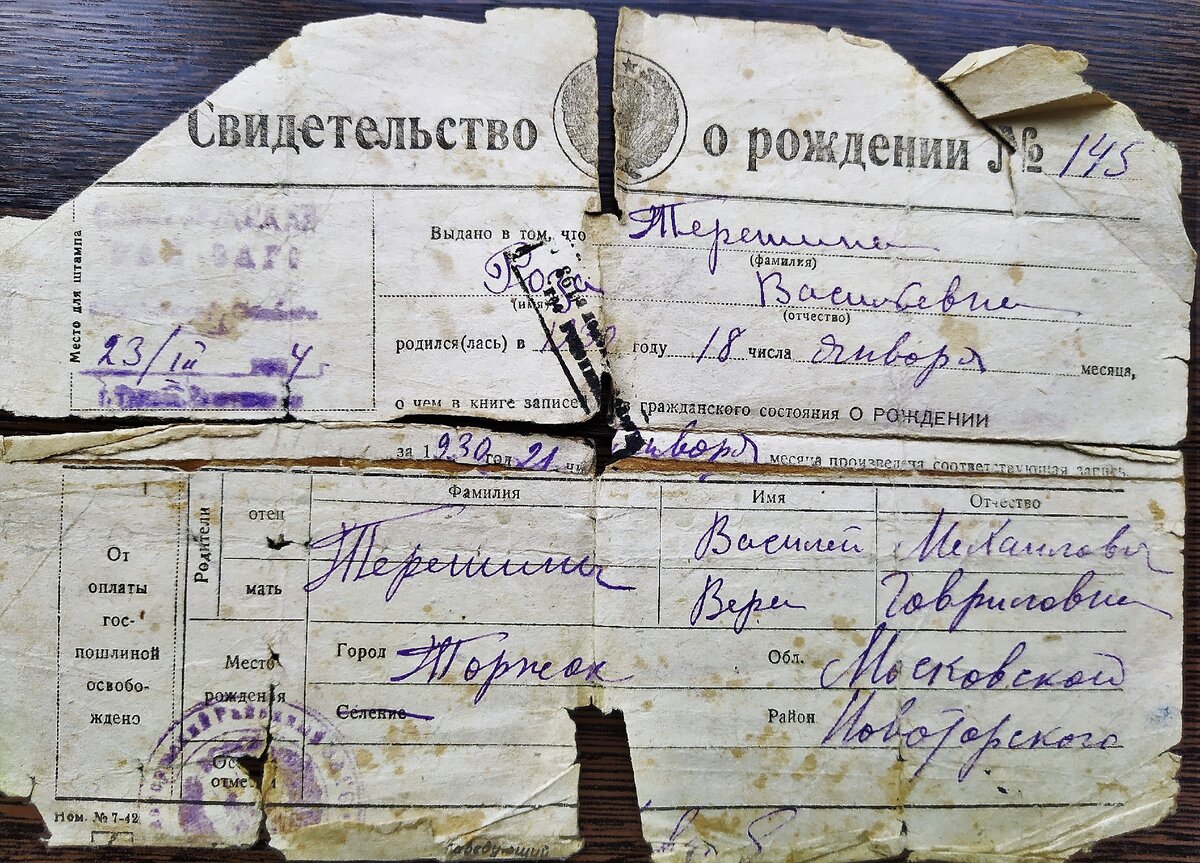 Свидетельство о рождении № 145
Место для штампа
23/III 4 г.
Выдано в том, что Терешина
(фамилия)
Роза Васильевна
(имя) (отчество)
родился(лась) в 1930 году 18 числа января месяца,
о чем в книге записе гражданского состояния О РОЖДЕНИИ
за 1930 год 21 января месяца произведена соответствующая запись
Фамилия Имя Отчество
Родители
отец Терешины Василий Михайлович
мать Вера Гавриловна
От оплаты гос-
пошлиной
освобо-
ждено
Место рождения
Город Торжок Обл. Московской
Селение Район Новоторского
Ном. № 7-42